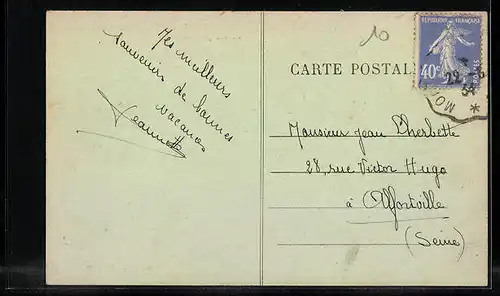 Mes meilleurs
souvenirs de bonnes
vacances
Jeannette
10
CARTE POSTALE
REPUBLIQUE FRANÇAISE
40c
22 - 8
34
*
Monsieur Jean Lherbette
28, rue Victor Hugo
à Alfortville
(Seine)